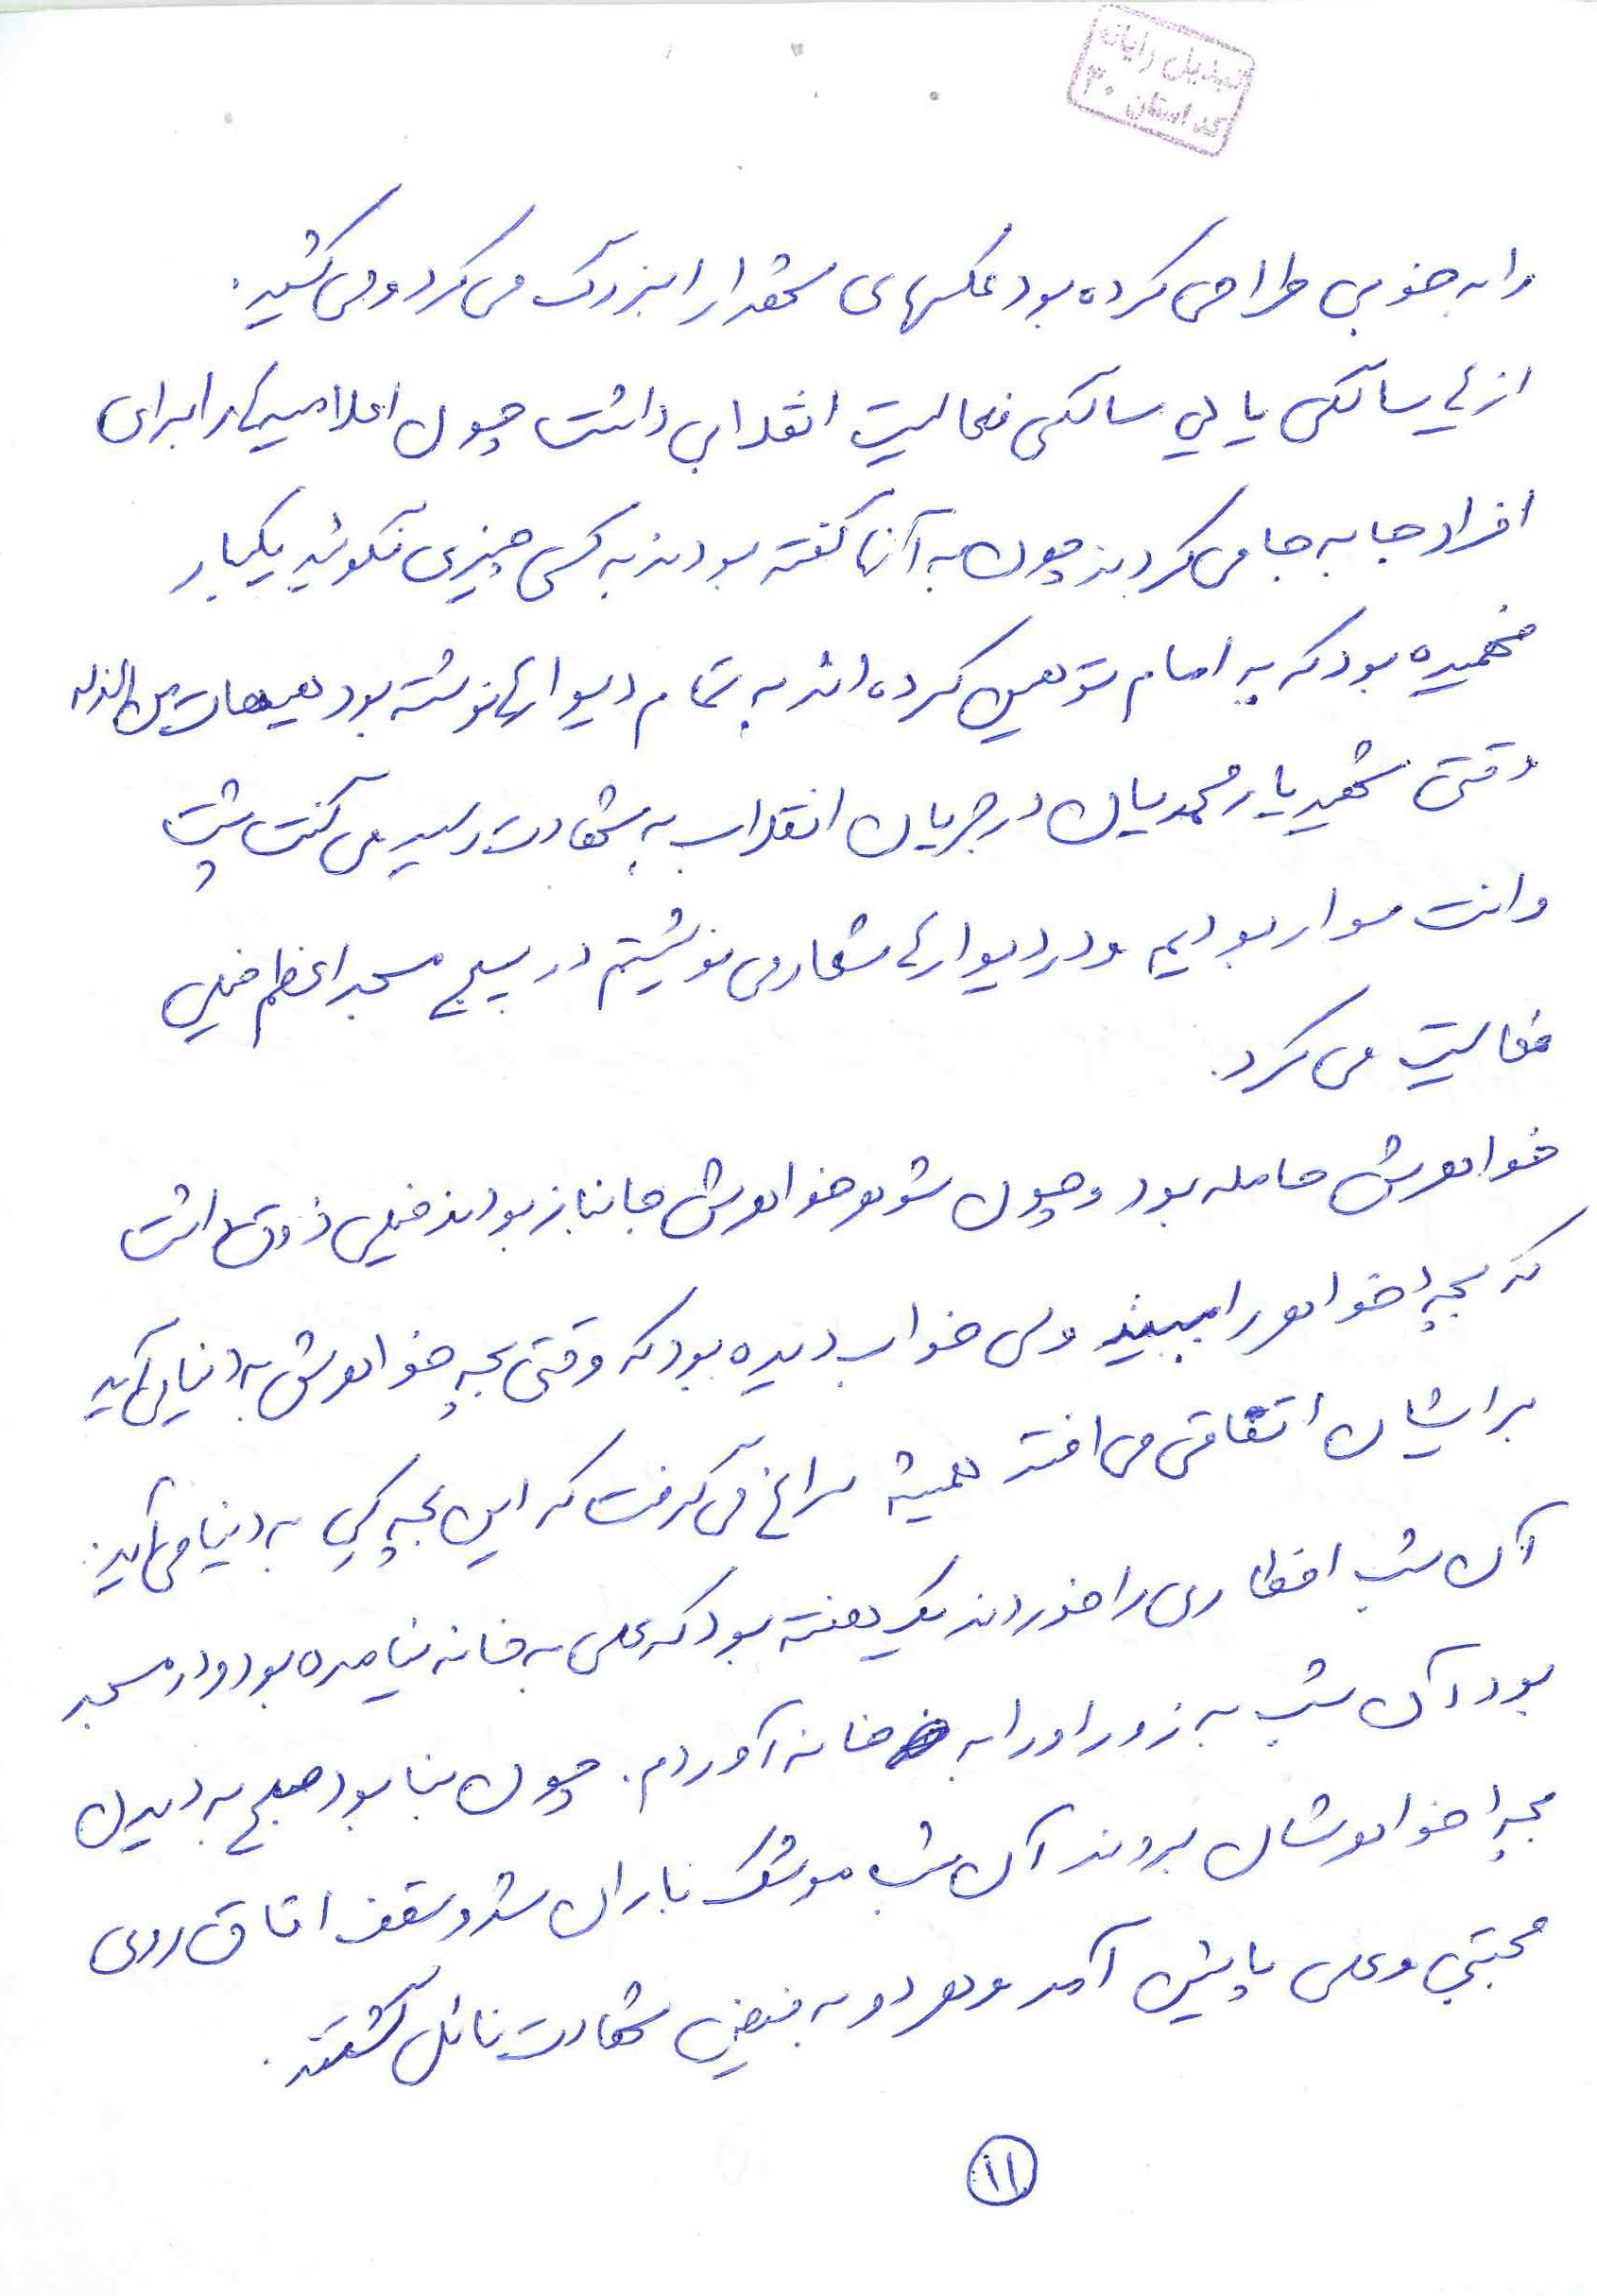 تبدیل رایان
کد استان ۳۰
را به خوبی طراحی کرده بود عکسهای شهدا را بزرگ می کرد و می کشید.
از سالگی یا سالگی فعالیت انقلابی داشت چون اعلامیه‌ها را برای
افراد جا به جا می کردند چون به آنها گفته بودند به کسی چیزی نگوئید یکبار
فهمیده بود که به امام توهین کرده اند به تمام دیوارها نوشته بود هیهات من الذله
وقتی شهید یارمحمدیان در جریان انقلاب به شهادت رسید می گفت پشت
وانت سوار بودیم و در دیوارها شعار می نوشتیم در بسیج مسجد اعظم خیلی
فعالیت می کرد.
خواهرش حامله بود و چون شوهر خواهرش جانباز بودند خیلی ذوق داشت
که بچه خواهر را ببیند ولی خواب دیده بود که وقتی بچه خواهرش به دنیا می آید
برایشان اتفاقی می افتد همیشه سراغ می گرفت که این بچه کی به دنیا می آید.
آن شب افطاری را خوردند یک هفته بود که علی به خانه نیامده بود و در مسجد
بود آن شب به زور او را به خانه آوردم. چون بنا بود صبح به دیدن
بچه خواهرشان بروند آن شب موشک باران شد و سقف اتاق روی
مجتبی و علی پایین آمد و هر دو به فیض شهادت نائل گشتند.
۱۱